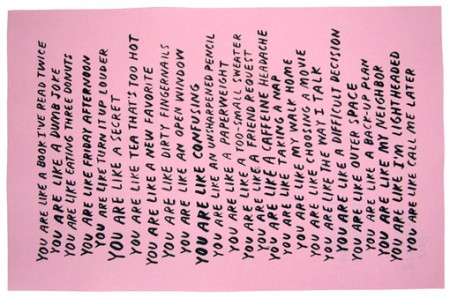 YOU ARE LIKE A BOOK I'VE READ TWICE
YOU ARE LIKE A DUMB JOKE
YOU ARE LIKE EATING THREE DONUTS
YOU ARE LIKE FRIDAY AFTERNOON
YOU ARE LIKE TURN IT UP LOUDER
YOU ARE LIKE A SECRET
YOU ARE LIKE TEA THAT'S TOO HOT
YOU ARE LIKE A NEW FAVORITE
YOU ARE LIKE DIRTY FINGERNAILS
YOU ARE LIKE AN OPEN WINDOW
YOU ARE LIKE CONFUSING
YOU ARE LIKE AN UNSHARPENED PENCIL
YOU ARE LIKE A PAPERWEIGHT
YOU ARE LIKE A TOO-SMALL SWEATER
YOU ARE LIKE A FRIEND REQUEST
YOU ARE LIKE A CAFFEINE HEADACHE
YOU ARE LIKE TAKING A NAP
YOU ARE LIKE MY WALK HOME
YOU ARE LIKE CHOOSING A MOVIE
YOU ARE LIKE THE WAY I TALK
YOU ARE LIKE A DIFFICULT DECISION
YOU ARE LIKE OUTER SPACE
YOU ARE LIKE A BACK-UP PLAN
YOU ARE LIKE MY NEIGHBOR
YOU ARE LIKE I'M LIGHTHEADED
YOU ARE LIKE CALL ME LATER